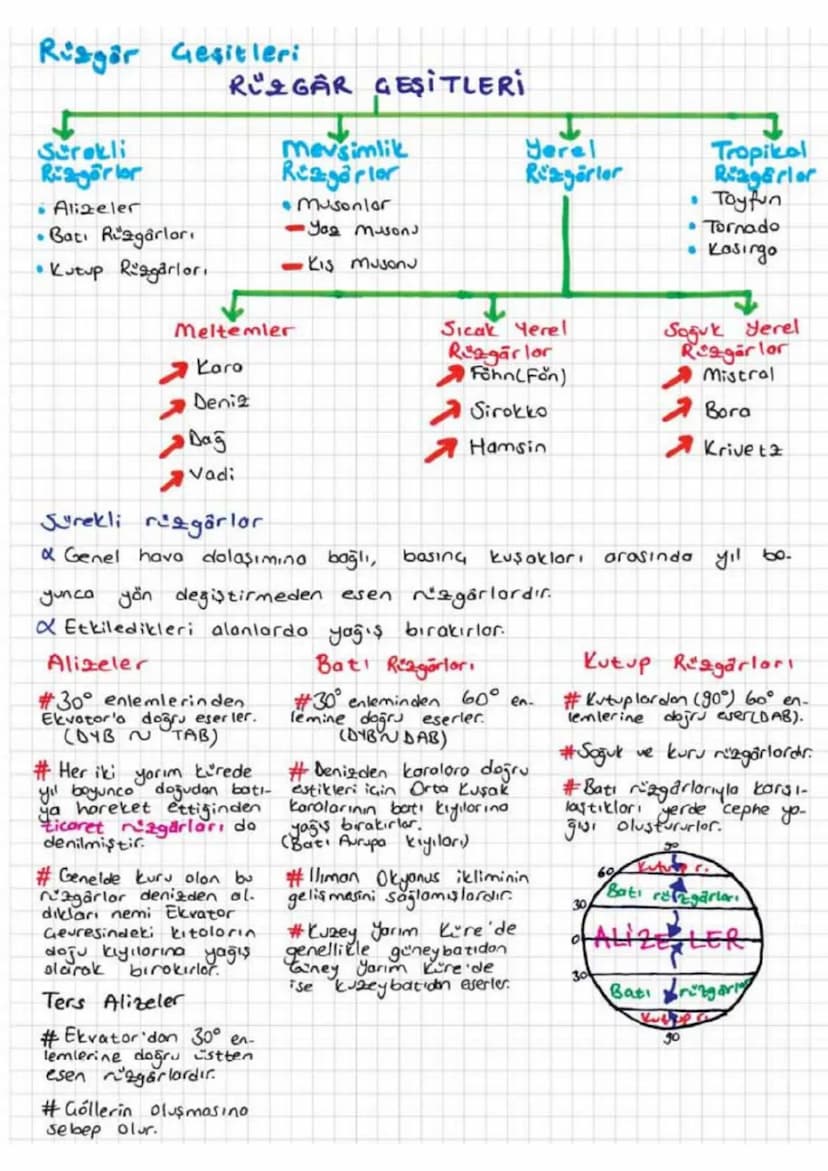 Rüzgâr Çeşitleri
RÜZGÂR ÇEŞİTLERİ
Sürekli
Rüzgârlar
• Alizeler
• Batı Rüzgârları
• Kutup Rüzgârları
Mevsimlik
Rüzgârlar
• Musonlar
- Yaz musonu
- Kış musonu
Yerel
Rüzgârlar
Tropikal
Rüzgârlar
• Tayfun
• Tornado
• Kasırga
Meltemler
Kara
Deniz
Dağ
Vadi
Sıcak Yerel
Rüzgârlar
Föhn(Fön)
Sirokko
Hamsin
Soğuk Yerel
Rüzgârlar
Mistral
Bora
Krivetz
Sürekli rüzgârlar
α Genel hava dolaşımına bağlı, basınç kuşakları arasında yıl bo-
yunca yön değiştirmeden esen rüzgârlardır.
α Etkiledikleri alanlarda yağış bırakırlar.
Alizeler
# 30° enlemlerinden
Ekvator'a doğru eserler.
(DYB ~ TAB)
# Her iki yarım kürede
yıl boyunca doğudan batı-
ya hareket ettiğinden
ticaret rüzgârları da
denilmiştir.
# Genelde kuru olan bu
rüzgârlar denizden al-
dıkları nemi Ekvator
Çevresindeki kıtaların
doğu kıyılarına yağış
olarak bırakırlar.
Ters Alizeler
# Ekvator'dan 30° en-
lemlerine doğru üstten
esen rüzgârlardır.
# Çöllerin oluşmasına
sebep olur.
Batı Rüzgârları
# 30° enleminden 60° en-
lemine doğru eserler.
(DYB ~ DAB)
# Denizden karalara doğru
estikleri için Orta Kuşak
karalarının batı kıyılarına
yağış bırakırlar.
(Batı Avrupa kıyıları)
# Ilıman Okyanus ikliminin
gelişmesini sağlamışlardır.
# Kuzey Yarım Küre'de
genellikle güneybatıdan
Güney Yarım Küre'de
ise kuzeybatıdan eserler.
Kutup Rüzgârları
# Kutuplardan (90°) 60° en-
lemlerine doğru eser(DAB).
# Soğuk ve kuru rüzgârlardır.
# Batı rüzgârlarıyla karşı-
laştıkları yerde cephe ya-
ğışı oluştururlar.
90
60 Kutup r.
Batı rüzgârları
30
0 ALİZELER
30
Batı rüzgârları
Kutup r.
90